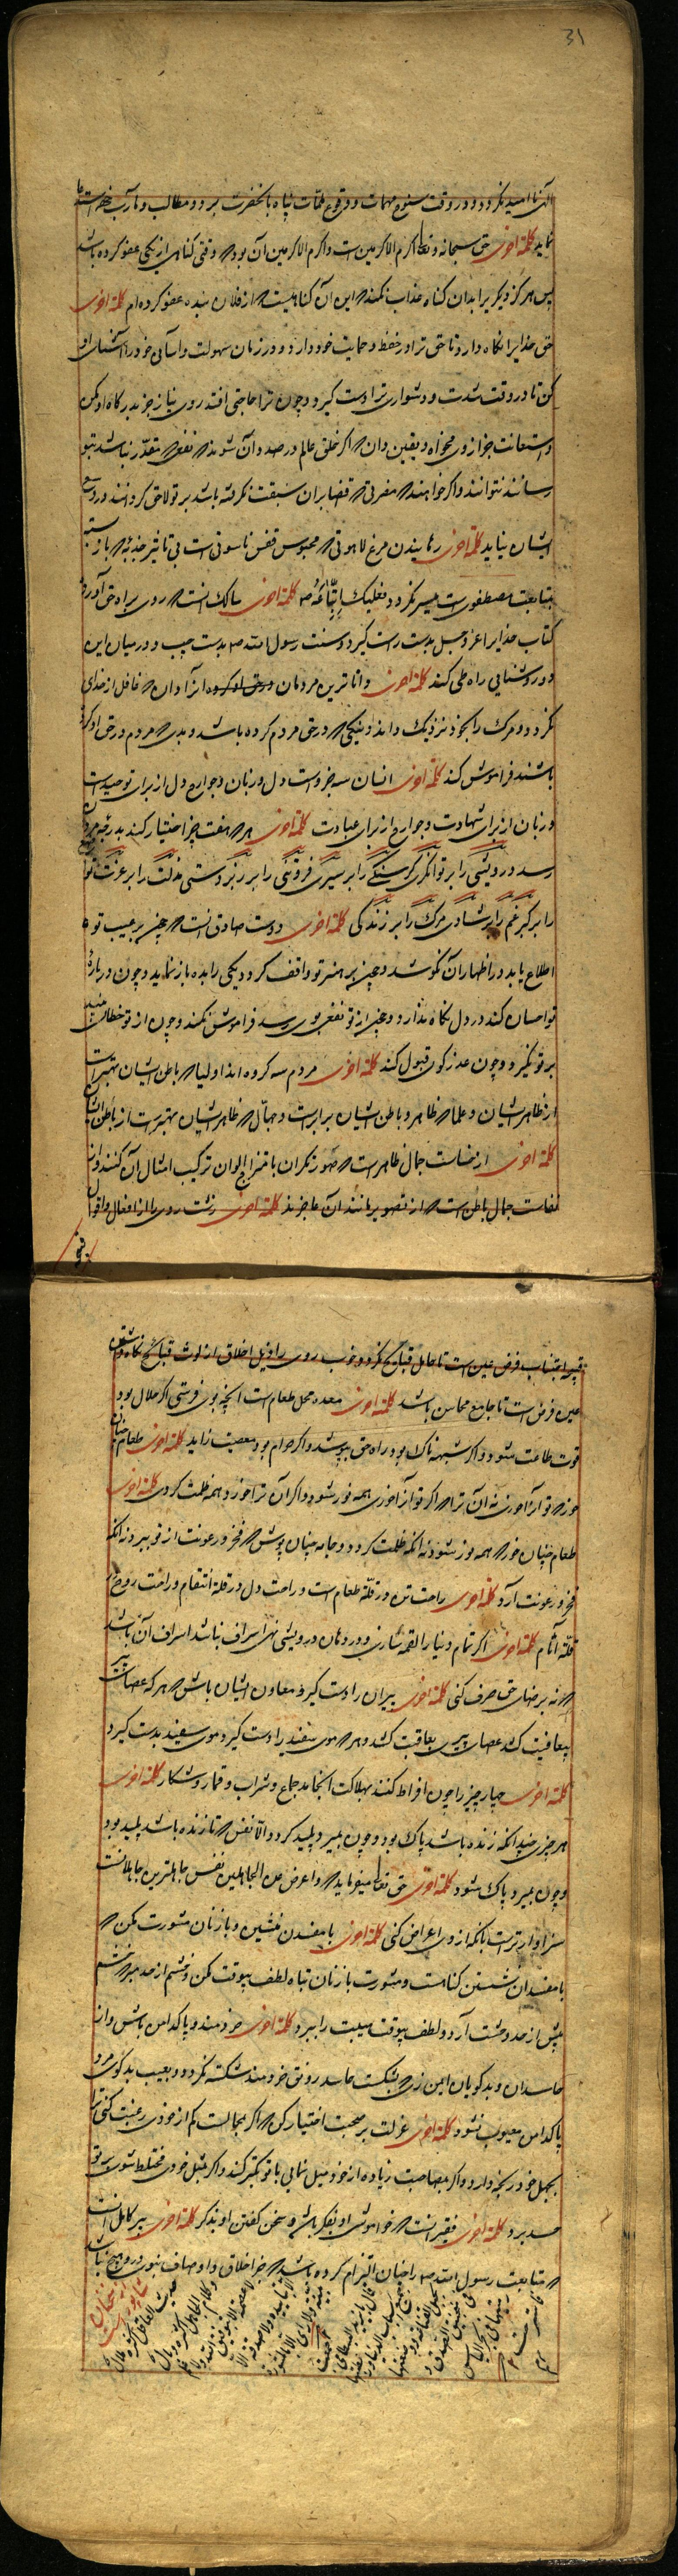 31
الهی ناامید نگردد و در وقت سنوح مهمات و وقوع ملمات پناه بآنحضرت برد و مطالب و مآرب
نماید کلمة اخری حق سبحانه و تعالی اکرم الاکرمین است و اکرم الاکرمین آن بود که وقتی گناهی از یکی عفو کرده باشد
پس هرگز دیگریرا بدان گناه عذاب نکند که این آن گناهیست که از فلان بنده عفو کرده‌ام کلمة اخری
حق خدایرا نگاه دار تا حق ترا در حفظ و حمایت خود دارد و در زمان سهولت و آسانی خود را آشنای او
کن تا در وقت شدت و دشواری ترا دست گیرد و چون ترا حاجتی افتد روی نیاز جز بدرگاه او مکن
و استعانت جز ازوی مخواه و یقین دان که اگر خلق عالم در صدد آن شوند که نفعی که مقدر نباشد بتو
رسانند نتوانند و اگر خواهند که مضرتی که قضا بران سبقت نگرفته باشد بر تو لاحق گردانند در وسع
ایشان نیاید کلمة اخری رهانیدن مرغ لاهوتی که محبوس قفس ناسوتی است بی تاثیر جذبه که باز بسته
بمتابعت مصطفوی است میسر نگردد فعلیک باتباعه صلعم کلمة اخری سالک آنست که روی براه حق آورده
کتاب خدایرا عز و جل بدست راست گیرد و سنت رسول الله صلعم بدست چپ و در میان این
دو روشنایی راه طی کند کلمة اخری داناترین مردمان آنرا دان که غافل از خدای
نگردد و مرگ را بخود نزدیک داند و نیکی که در حق مردم کرده باشد و بدی که مردم در حق او کرده
باشند فراموش کند کلمة اخری انسان سه جزو است دل و زبان و جوارح دل از برای توحید است
و زبان از برای شهادت و جوارح از برای عبادت کلمة اخری هر که هفت چیز اختیار کند بدرجه مردان
رسد درویشی را بر توانگری گرسنگی را بر سیری فروتنی را بر زبردستی مذلت را بر عزت تواضع
را بر کبر غم را بر شادی مرگ را بر زندگی کلمة اخری دوست صادق آنست که چون بر عیب تو
اطلاع یابد در اظهار آن نکوشد و چون بر هنر تو واقف گردد یکی را بده باز نماید و چون درباره
تو احسان کند در دل نگاه ندارد و چون از تو نفعی بوی رسد فراموش نکند و چون از تو خطائی بیند
بر تو نگیرد و چون عذر گوئی قبول کند کلمة اخری مردم سه گروه اند اولیا که باطن ایشان بهتر است
از ظاهر ایشان و علما که ظاهر و باطن ایشان برابر است و جهال که ظاهر ایشان بهتر است از باطن ایشان
کلمة اخری از خساست جمال ظاهر است که صورتگران بامتزاج الوان ترکیب امثال آن کنند و از
نفاست جمال باطن است که از تصویر مانند آن عاجزند کلمة اخری زشت روی را از افعال و اقوال
قبیح
قبیح اجتناب فرض عین است تا حامل قبایح نگردد و خوب روی را ذیل اخلاق از لوث قبایح نگاه داشتن
عین فرض است تا جامع محاسن باشد کلمة اخری معده محل طعام است آنچه بوی فرستی اگر حلال بود
قوت طاعت شود و اگر شبهه ناک بود راه حق بپوشد و اگر حرام بود معصیت زاید کلمة اخری طعام چنان
خور که تو آنرا خوری نه آن ترا که اگر تو آنرا خوری همه نور شود و اگر آن ترا خورد همه ظلمت گردی کلمة اخری
طعام چنان خور که همه نور شود نه آنکه ظلمت گردد و جامه چنان پوش که فخر و رعونت از تو ببرد نه آنکه
فخر و رعونت آرد کلمة اخری راحت تن در قلة طعام است و راحت دل در قلة انتقام و راحت روح در
قلة آثام کلمة اخری اگر تمام دنیا را لقمه سازی و در دهان درویشی نهی اسراف نباشد اسراف آن باشد
که نه برضای حق صرف کنی کلمة اخری پیران را دست گیر و معاون ایشان باش که هر که عصای پیری
بعافیت کشد عصای پیری بعاقبت کشد و هر که موی سفید را دست گیرد موی سفید بدست گیرد
کلمة اخری چهار چیز را چون افراط کنند بهلاکت انجامد جماع و شراب و قمار و شکار کلمة اخری
هر چیزی چندانکه زنده باشد پاک بود و چون بمیرد پلید گردد الا نفس که تا زنده باشد پلید بود
و چون بمیرد پاک شود کلمة اخری حق تعالی میفرماید که و اعرض عن الجاهلین نفس جاهلترین جاهلانست
سزاوارتر است بآنکه ازوی اعراض کنی کلمة اخری با مفسدان منشین و با زنان مشورت مکن که
با مفسدان نشستن گناهست و مشورت با زنان تباه لطف بیوقت مکن و خشم از حد مبر که خشم
بیش از حد وحشت آرد و لطف بیوقت هیبت را ببرد کلمة اخری خردمند و پاکدامن باش و از
حاسدان و بدگویان ایمن زی که بشکست حاسد رونق خردمند شکسته نگردد و بعیب بدگوی مرد
پاکدامن معیوب نشود کلمة اخری عزلت بر صحبت اختیار کن که اگر بمجالست کم از خودی رغبت کنی ترا
بجهل خود رنجه دارد و اگر بمصاحبت زیاده از خود میل نمایی با تو تکبر کند و اگر بمثل خودی مختلط شوی بر تو
حسد برد کلمة اخری فقیر آنست که خواموشی او بفکر باشد و سخن گفتن او بذکر کلمة اخری پیر کامل آنست
که متابعت رسول الله صلعم را چنان التزام کرده باشد که جز اخلاق و اوصاف نبوی درو هیچ نباشد